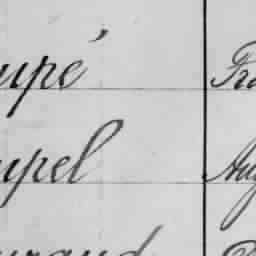 upé Fra
upel Aug
urand